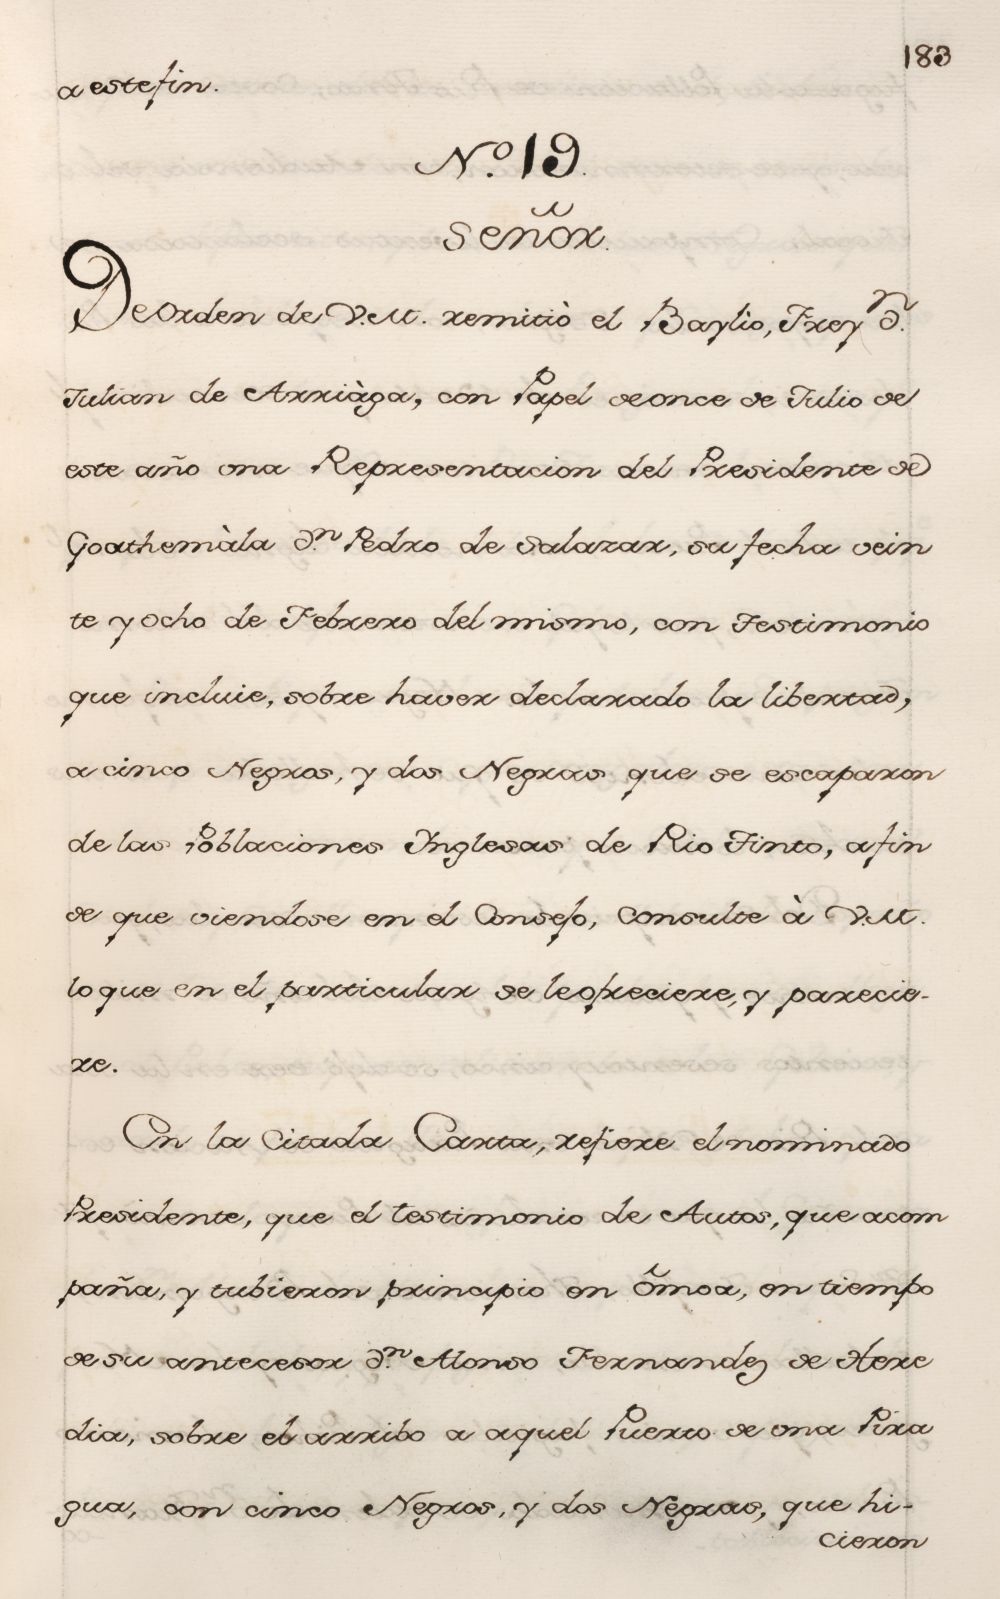 183
a este fin.
Nº. 19.
Señor.
De orden de V.M. remitiò el Baylio, Frey Dn.
Julian de Arriàga, con Papel de once de Julio de
este año una Representacion del Presidente de
Goathemàla Dn. Pedro de Salazar, su fecha vein
te y ocho de Febrero del mismo, con Testimonio
que incluie, sobre haver declarado la libertad,
a cinco Negros, y dos Negras que se escaparon
de las Poblaciones Ynglesas de Rio Tinto, a fin
de que viendose en el Consejo, Consulte à V.M.
lo que en el particular se le ofreciere, y parecie-
re.
En la Citada Carta, refiere el nominado
Presidente, que el testimonio de Autos, que acom
paña, y tubieron principio en Omoa, en tiempo
de su antecesor Dn. Alonso Fernandez de Here
dia, sobre el arribo a aquel Puerto de una Pira
gua, con cinco Negros, y dos Negras, que hi-
cieron